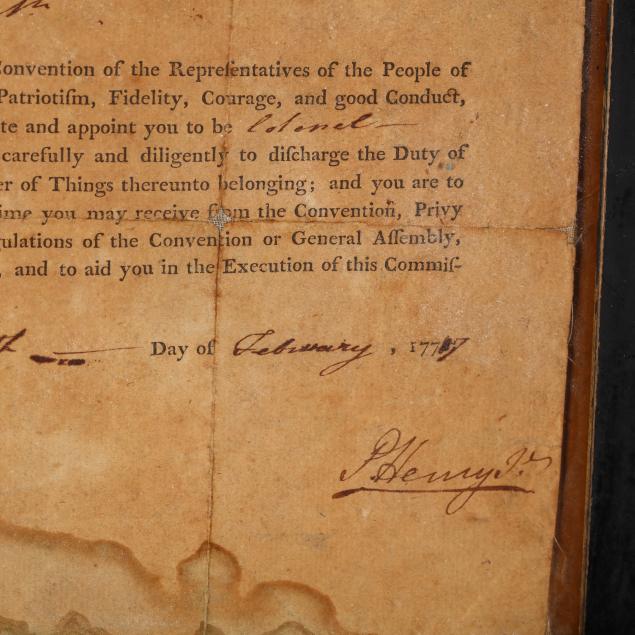 Convention of the Repreſentatives of the People of
Patriotiſm, Fidelity, Courage, and good Conduct,
te and appoint you to be Colonel
carefully and diligently to diſcharge the Duty of
er of Things thereunto belonging; and you are to
ime you may receive from the Convention, Privy
gulations of the Convention or General Aſſembly,
, and to aid you in the Execution of this Commiſ-
Day of February, 1777
P. Henry Jr.